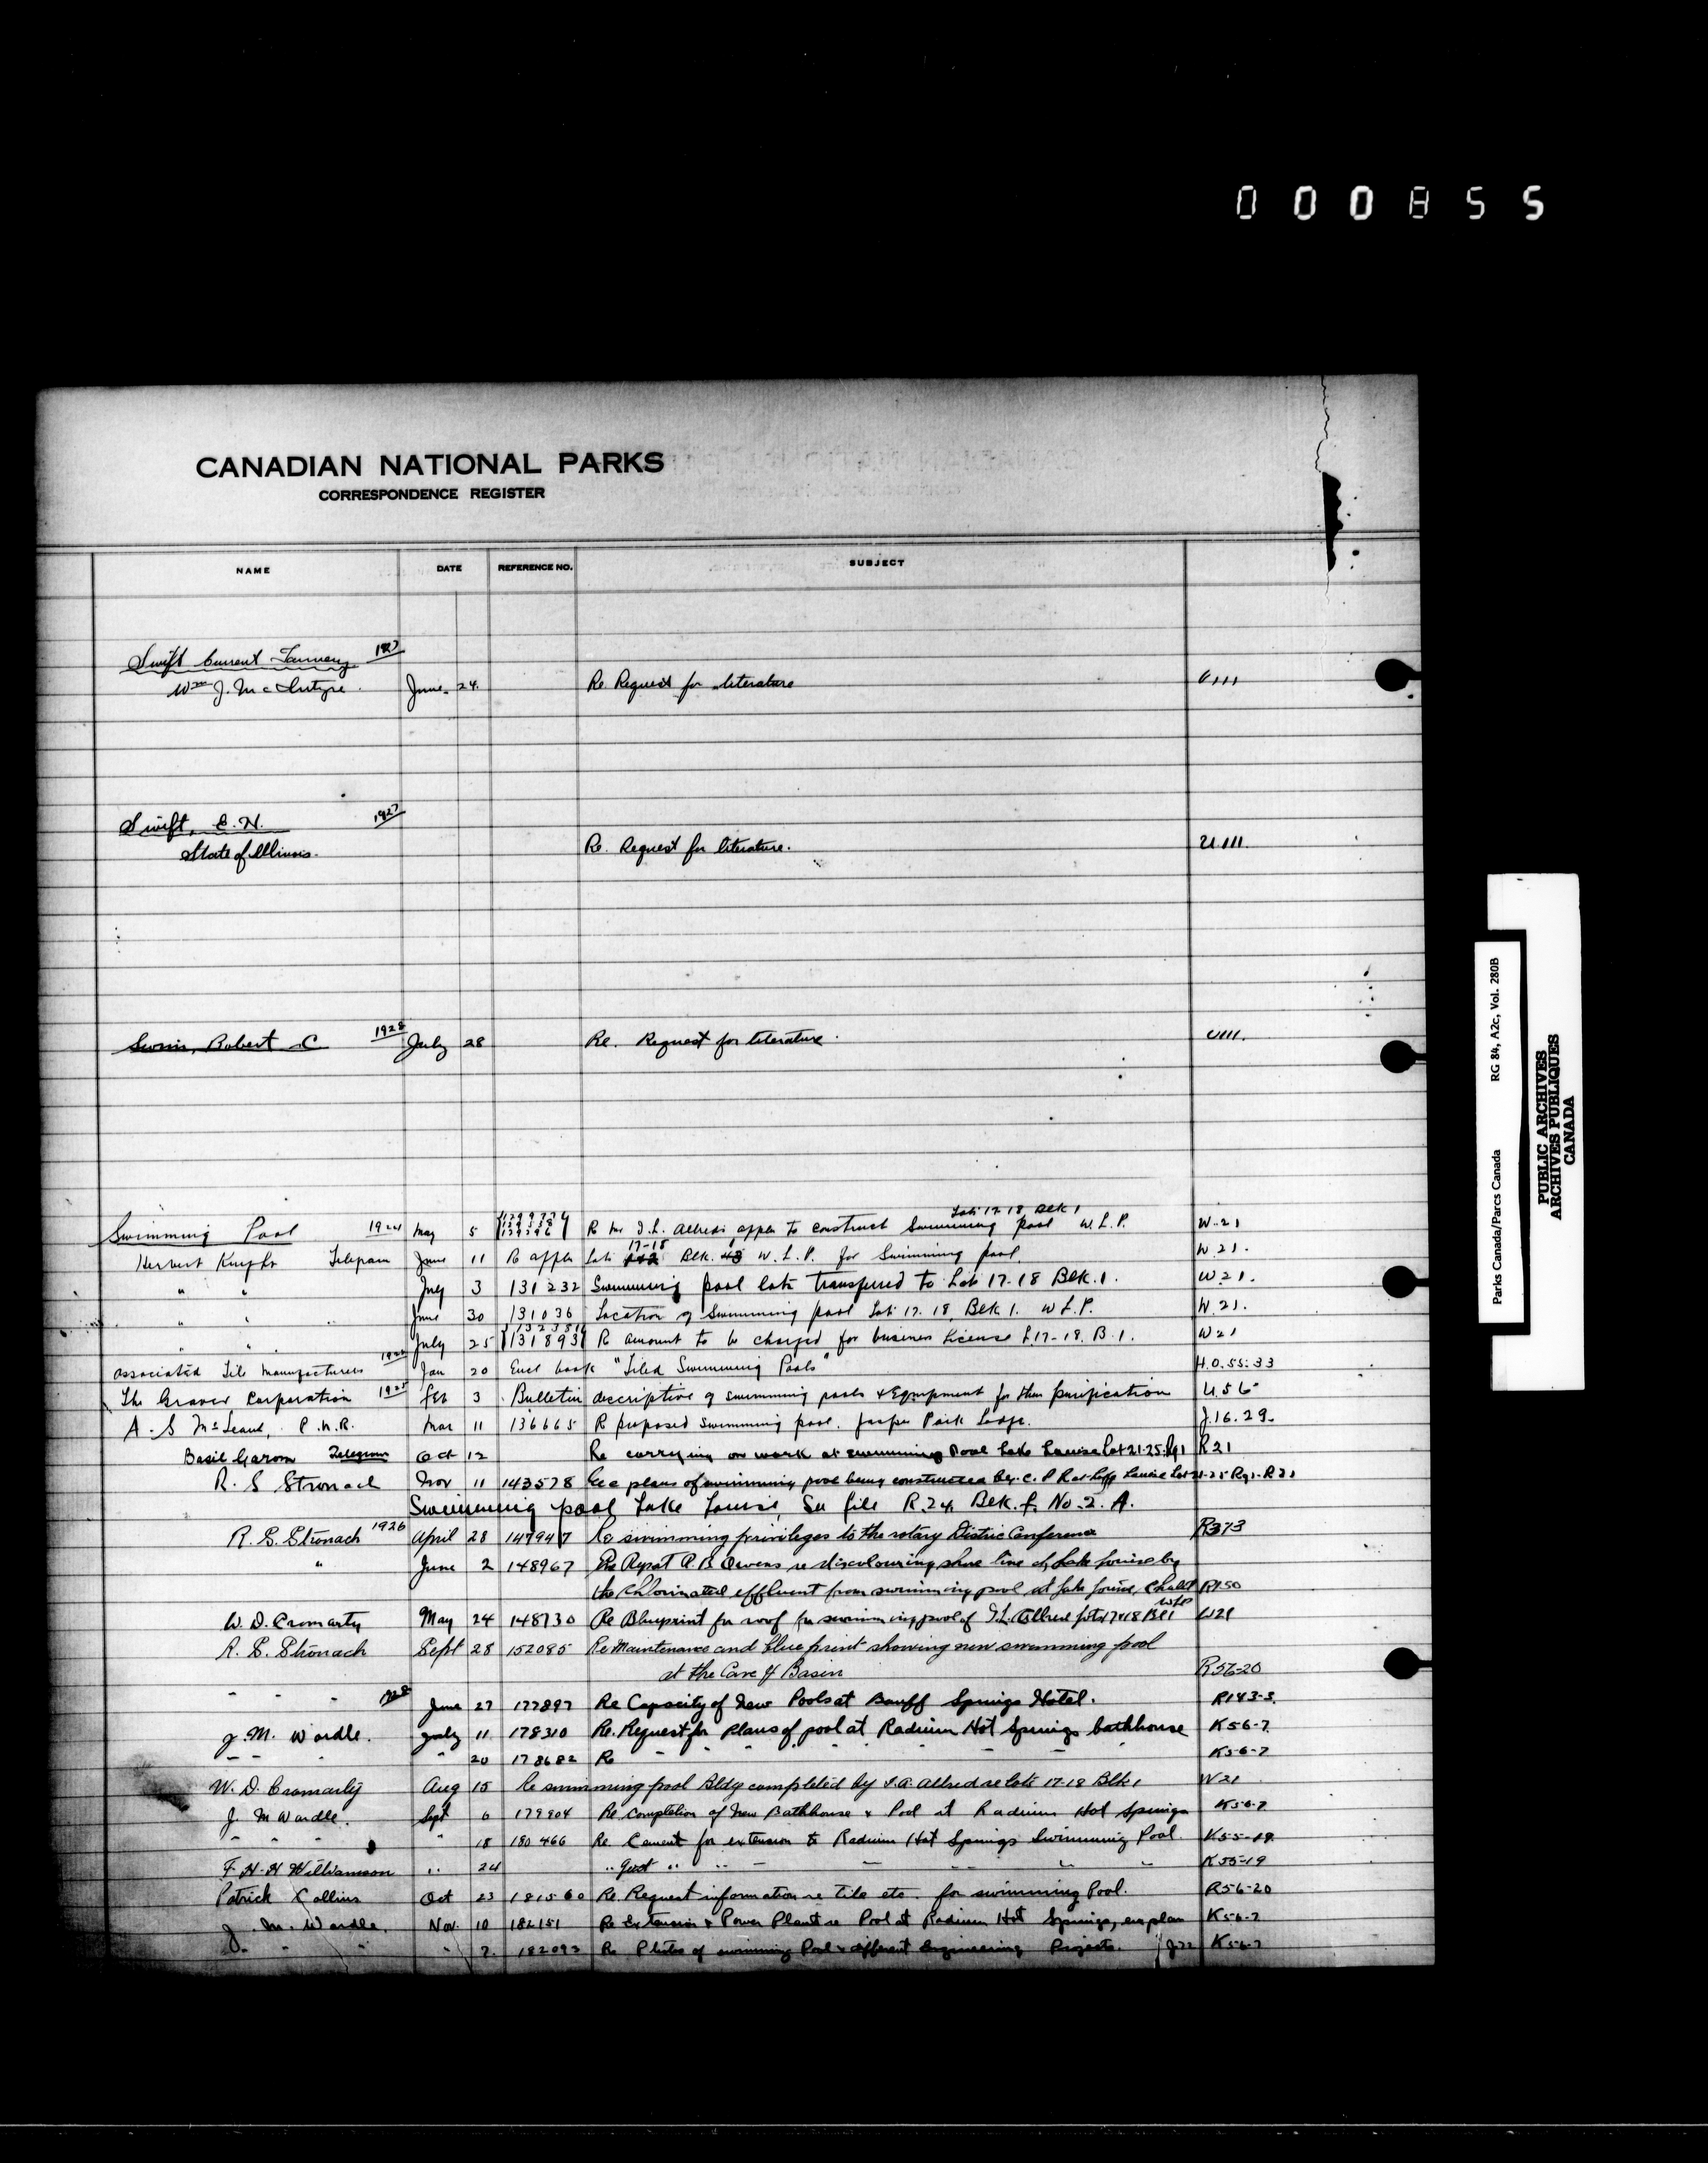 000855
CANADIAN NATIONAL PARKS
CORRESPONDENCE REGISTER
NAME DATE REFERENCE NO. SUBJECT
Swift Current Tannery 1927
Wm J. McIntyre. June 24. Re. Request for literature U111
Swift, E. N. 1927
State of Illinois. Re. Request for literature. U111.
Robert C 1928 July 28 Re. Request for literature. U111.
Lots 17-18 Blk 1
Swimming Pool 1924 May 5 R Mr to construct Swimming pool W.L.P. W-21
17-18 1
Herbert Knight Telegram June 11 R appln Lots Blk. W.L.P. for Swimming pool. W.21.
" " July 3 131232 Swimming pool lots transferred to Lots 17-18 Blk.1. W.21.
" " June 30 131036 Location of Swimming pool Lots 17-18, Blk 1. W L.P. W.21.
" " July 25 131893 R amount to be charged for business License L17-18. B.1. W21
Associated Tile Manufacturers Jan 20 Encl book "Tiled Swimming Pools" H.O.55-33
The Graver Corporation 1925 Feb 3 Bulletin descriptive of swimming pools & Equipment for their purification U.56
A. S McLean, Mar 11 136665 R proposed swimming pool. Jasper Park Lodge. J.16.29.
Basil Garom Telegram Oct 12 Re carrying on work at swimming Pool Lake Louise Lot 21-25 R21
R. S Stronach Nov 11 143578 plans of swimming pool being constructed by C. P R Louise
Swimming pool Lake Louise, See file R.24, Blk. f. No-2. A.
R. S. Stronach 1926 April 28 147947 Re swimming privileges to the rotary Distric Conference R373
" June 2 148967 Re Report R. B Owens re discolouring shore line of Lake Louise by
the chlorinated effluent from swimming pool at Lake Louise, Chalet R150
W. D. Cromarty May 24 148730 Re Blueprint for roof for swimming pool of Allred Lots 17 & 18 Bl 1 WLP W21
R. S. Stronach Sept 28 152085 Re Maintenance and blue print showing new swimming pool
at the Cave & Basin R56-20
" " " 1928 June 27 177897 Re Capacity of New Pools at Banff Springs Hotel. R143-3.
J. M. Wardle. July 11 178310 Re. Request for Plans of pool at Radium Hot Springs bathhouse K56-7
" " " 20 178682 Re " " " " " " K56-7
W. D. Cromarty Aug 15 Re swimming pool Bldg completed by Allred re lots 17-18 Blk 1 W21
J. M Wardle. Sept 6 179904 Re. Completion of New Bathhouse & Pool at Radium Hot Springs K56-7
" " " " 18 180466 Re. Cement for extension to Radium Hot Springs Swimming Pool. K55-19.
F. H. H Williamson " 24 K55-19
Patrick Collins Oct 23 181560 Re. Request information re tile etc. for swimming Pool. R56-20
J. M. Wardle. Nov. 10 182151 Re Extension & Power Plant re Pool at Radium Hot Springs, K56-7
J. " " " 7. 182093 Re of swimming Pool & different Engineering Projects. K56-7
Parks Canada/Parcs Canada RG 84, A2c, Vol. 280B
PUBLIC ARCHIVES
ARCHIVES PUBLIQUES
CANADA